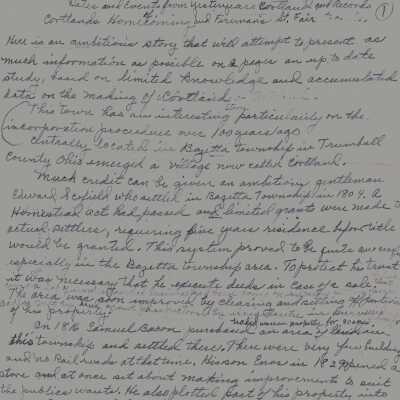 Dates and Events from Yesteryears Cortland and Records
Cortlands Homecoming and Firemans St. Fair
1
Here is an ambitious story that will attempt to present as
much information as possible on 2 pages an up to date
study, based on limited knowledge and accumulated
data on the making of Cortland
This town has an interesting particularly on the
incorporation procedure over 100 years ago
Centrally located in Bazetta township in Trumbull
County Ohio emerged a village now called Cortland.
Much credit can be given an ambitious gentleman
Edward Scofield who settled in Bazetta Township in 1804. A
Homestead act had passed and limited grants were made to
actual settlers, requiring five years residence before title
would be granted. This system proved to be quite
especially in the Bazetta township area. To protect his
it was necessary that he execute deeds in case of a sale
The area was soon improved by clearing and settling
of his property
In 1816 Samuel Bacon purchased an area of land in
this township and settled there. There were very few building
and no Railroads at that time, Hixson Enos in 1829 opened a
store and at once set about making improvements to suit
the publics wants. He also plotted part of his property into